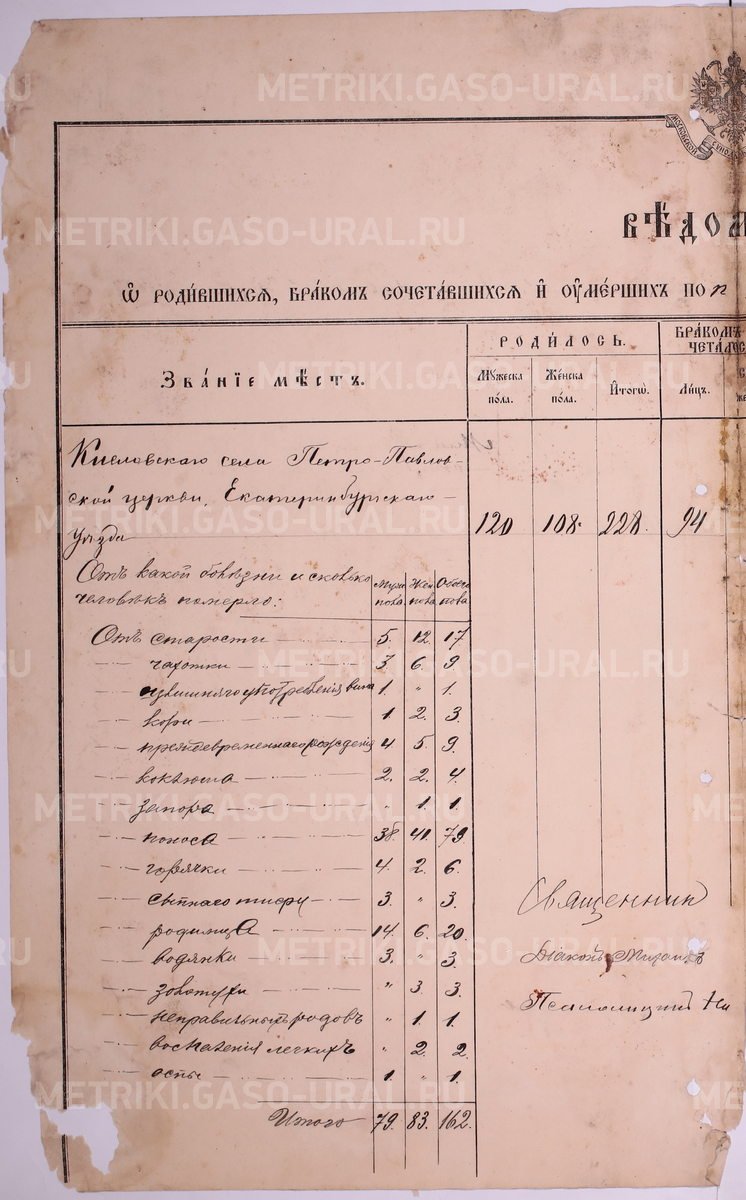 METRIKI.GASO-URAL.RU
МОСКОВСКОЙ СѴНОД
ВѢДОМ
Ѿ РОДИ́ВШИХСЯ, БРА́КОМЪ СОЧЕТА́ВШИХСЯ И ОУМЕ́РШИХЪ ПО
ЗВА́НІЕ МѢСТЪ.
РОДИ́ЛОСЬ.
БРА́КОМЪ
ЧЕТА́ЛОС
МУ́ЖЕСКА ПО́ЛА.
ЖЕ́НСКА ПО́ЛА.
ИТОГѠ.
ЛИЦЪ.
Кисловскаго села Петро-Павлов-
ской церкви, Екатеринбургскаго
уѣзда 120 108. 228. 94
Отъ какой болѣзни и сколько Муж. Жен. Обоего
человѣкъ померло: пола пола пола
Отъ старости 5. 12. 17
— чахотки 3. 6. 9
— излишняго употребленія вина 1. " 1.
— кори 1. 2. 3.
— преждевременнаго рожденія 4. 5. 9.
— коклюша 2. 2. 4.
— запора " 1. 1.
— поноса 38. 41. 79.
— горячки 4. 2. 6.
— сыпнаго тифу 3. " 3.
— родимца 14. 6. 20.
— водянки 3. " 3.
— золотухи " 3. 3.
— неправильныхъ родовъ " 1. 1.
— воспаленія легкихъ " 2. 2.
— оспы 1. " 1.
Итого 79. 83. 162.
Священник
Діаконъ Михаилъ
Псаломщикъ